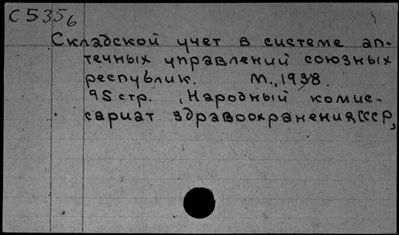 С5356
Складской учет в системе ап-
течных управлений союзных
республик. М., 1938.
95 стр. , Народный комис-
сариат здравоохранения СССР,